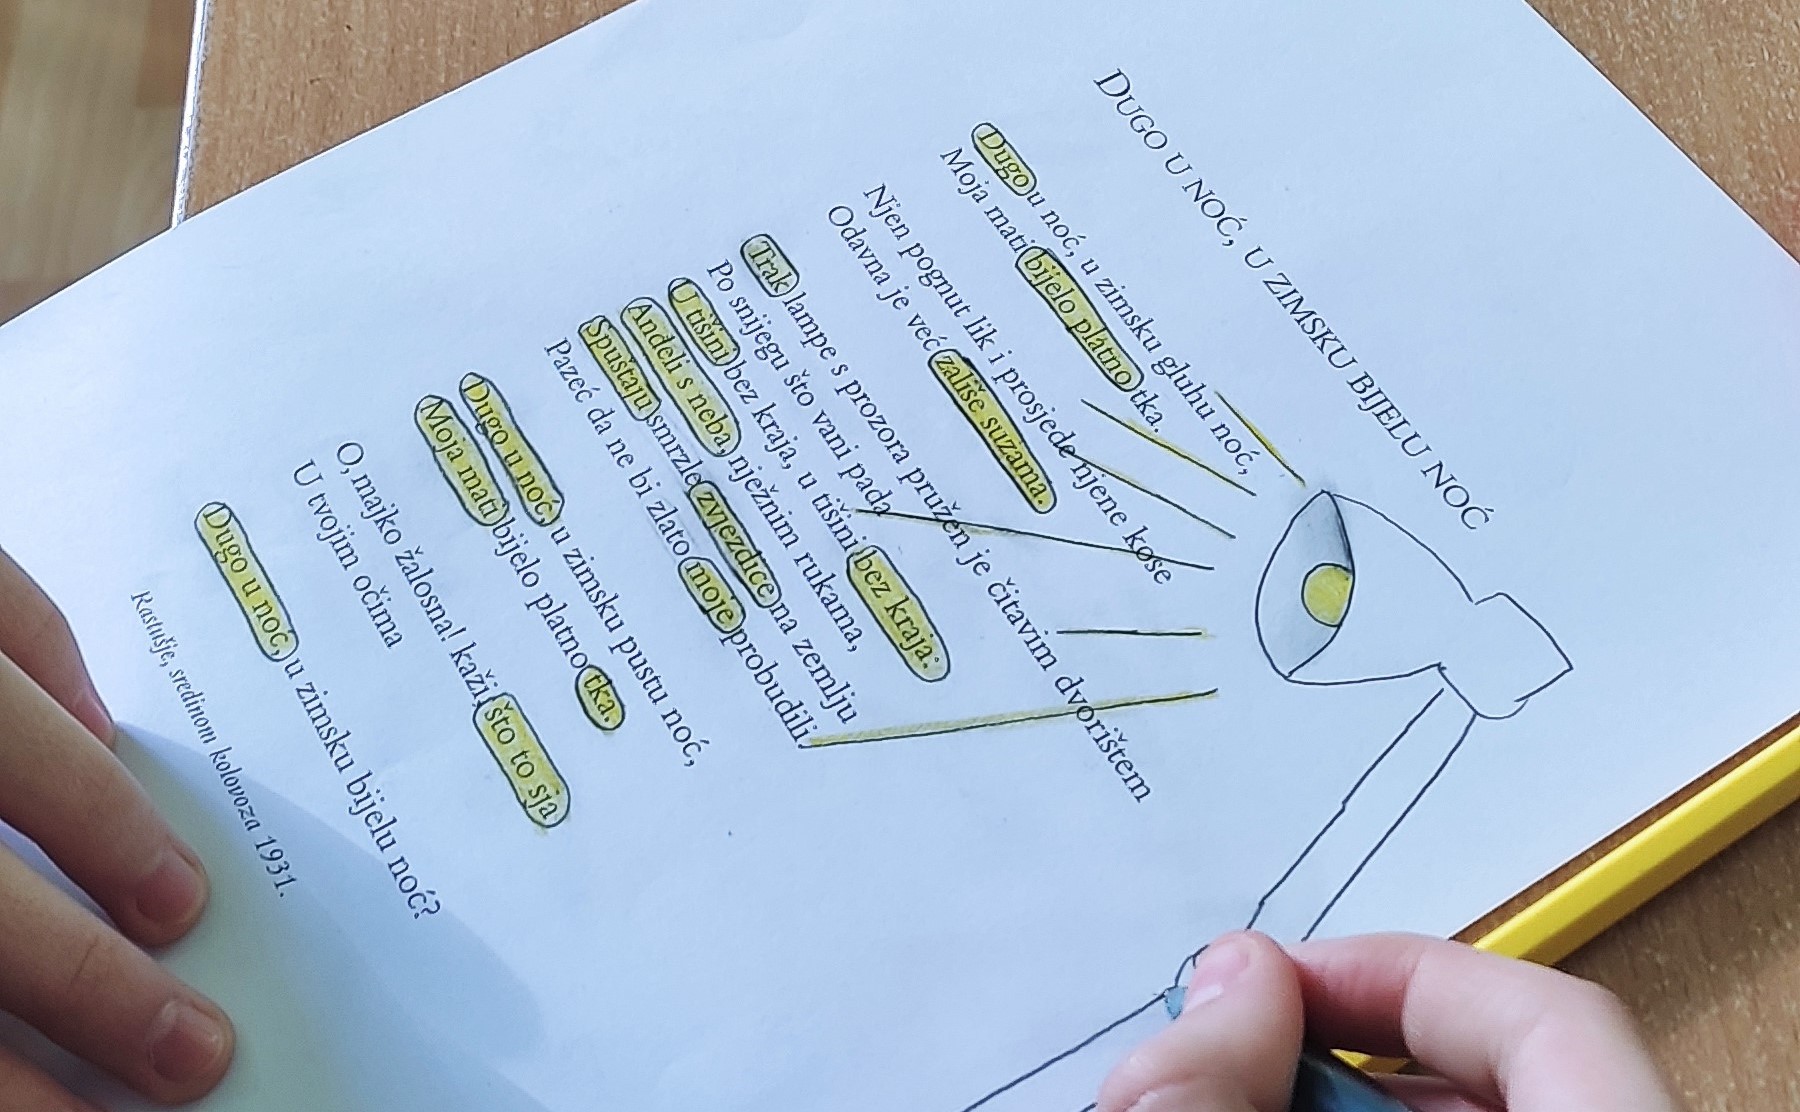 DUGO U NOĆ, U ZIMSKU BIJELU NOĆ
Dugo u noć, u zimsku gluhu noć,
Moja mati bijelo platno tka.
Njen pognut lik i prosjede njene kose
Odavna je već zališe suzama.
Trak lampe s prozora pružen je čitavim dvorištem
Po snijegu što vani pada
U tišini bez kraja, u tišini bez kraja:
Anđeli s neba, nježnim rukama,
Spuštaju smrzle zvjezdice na zemlju
Pazeć da ne bi zlato moje probudili.
Dugo u noć, u zimsku pustu noć,
Moja mati bijelo platno tka.
O, majko žalosna! kaži, što to sja
U tvojim očima
Dugo u noć, u zimsku bijelu noć?
Rastušje, sredinom kolovoza 1931.